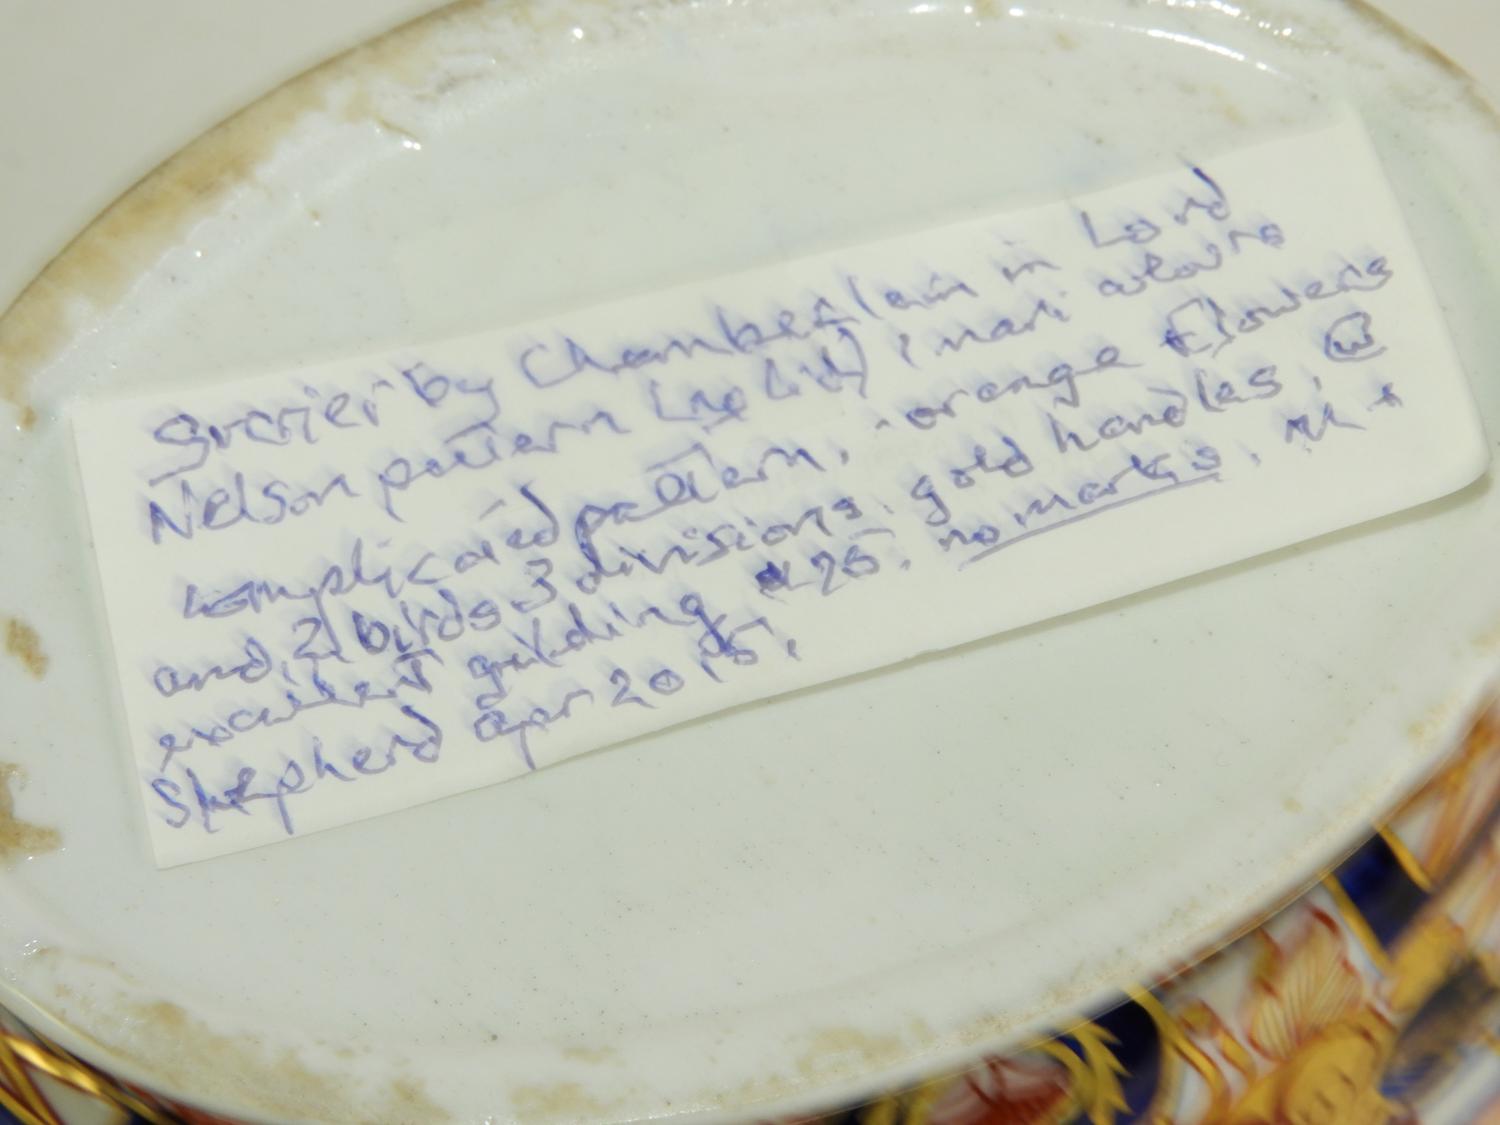 Sucrier by Chamberlain in Lord
Nelson pattern (no lid) imari colours
complicated pattern, orange flowers
and 2 birds 3 divisions, gold handles,
excellent gilding £25. no marks.
Shepherd Apr 2015.